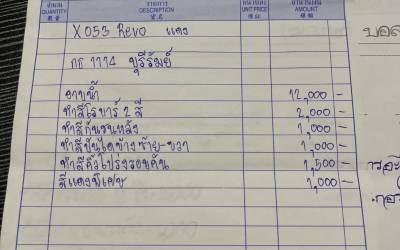 จำนวน รายการ หน่วยละ จำนวนเงิน
QUANTITY DESCRIPTION UNIT PRICE AMOUNT
X053 Revo แดง
กธ 1174 บุรีรัมย์
อาบน้ำ 12,000 -
ทำสีโรบาร์ 2 สี 2,000 -
ทำสีกันชนหลัง 1,000 -
ทำสีบันไดข้างซ้าย-ขวา 1,000 -
ทำสีคิ้วโป่งรอบคัน 1,500 -
สีแดงพิเศษ 1,000 -